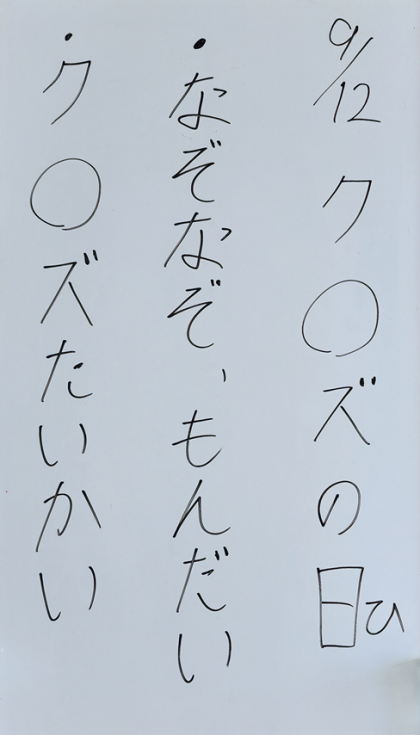 9/12 ク○ズの日ひ
・なぞなぞ、もんだい
・ク○ズたいかい